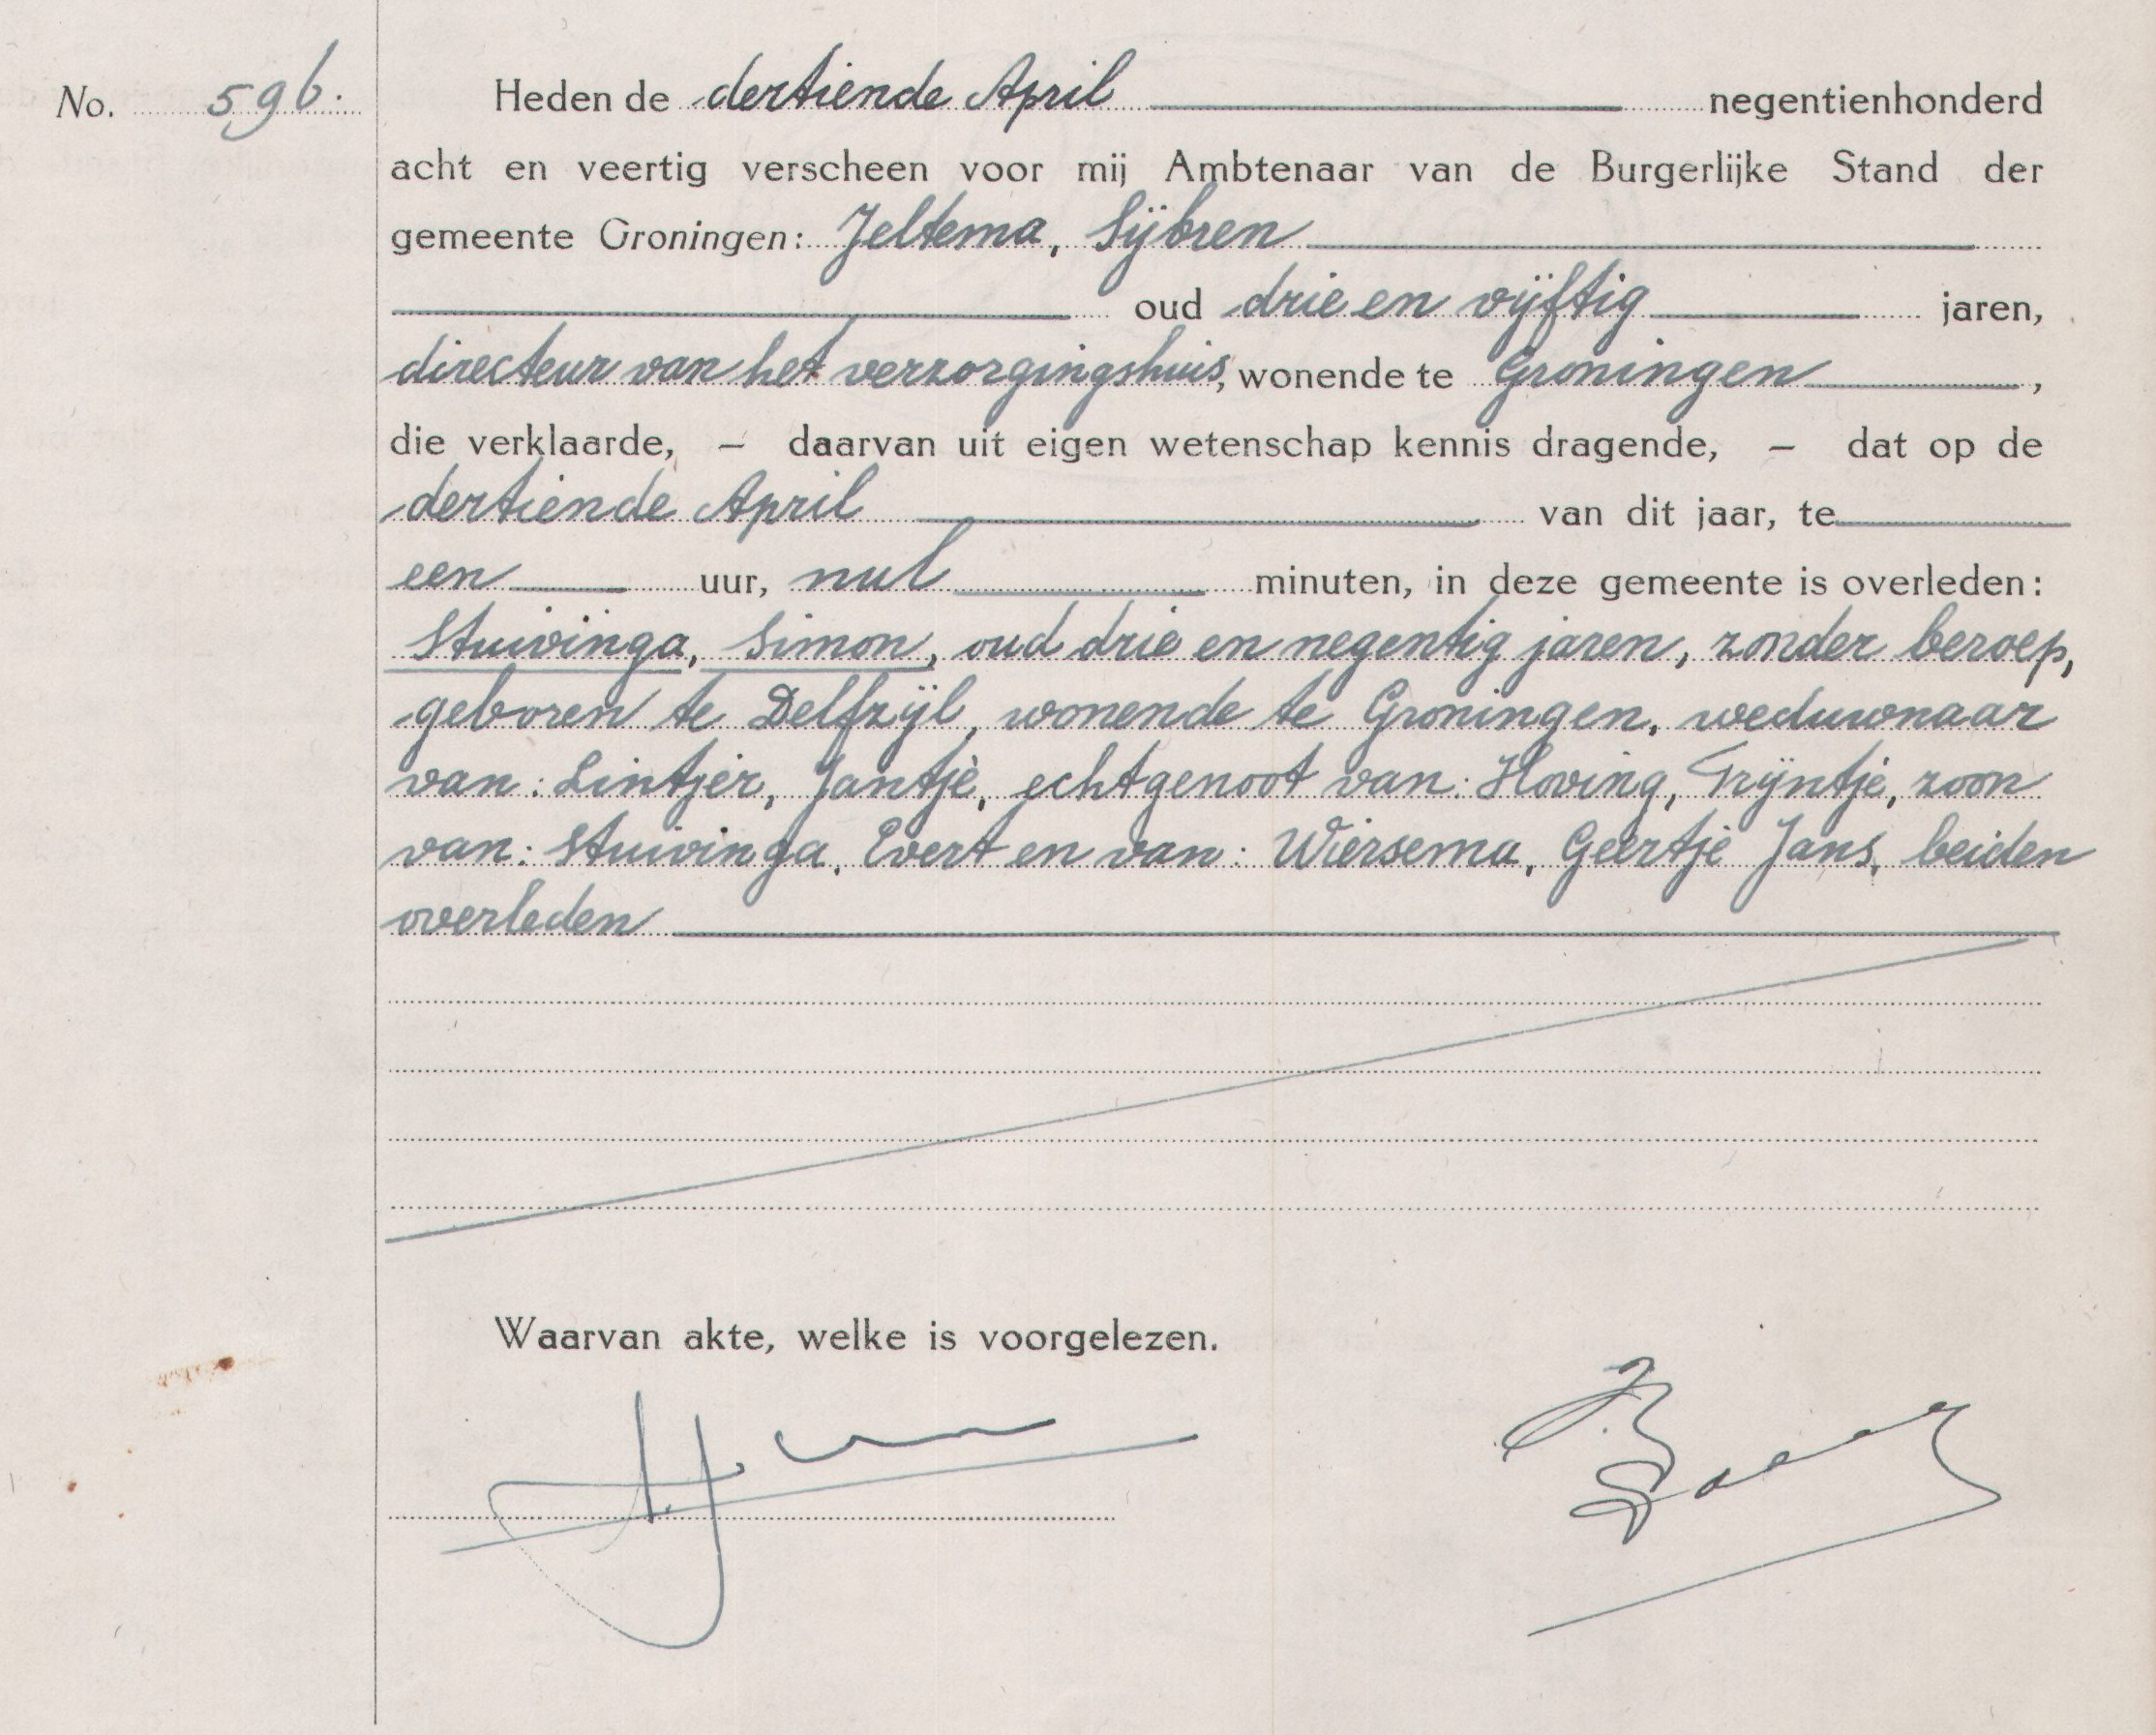 No. 596.
Heden de dertiende April negentienhonderd
acht en veertig verscheen voor mij Ambtenaar van de Burgerlijke Stand der
gemeente Groningen: Jeltema, Sijbren
oud drie en vijftig jaren,
directeur van het verzorgingshuis, wonende te Groningen,
die verklaarde, — daarvan uit eigen wetenschap kennis dragende, — dat op de
dertiende April van dit jaar, te
een uur, nul minuten, in deze gemeente is overleden:
Stuivinga, Simon, oud drie en negentig jaren, zonder beroep,
geboren te Delfzijl, wonende te Groningen, weduwnaar
van: Lintjer, Jantje, echtgenoot van: Hoving, Trijntje, zoon
van: Stuivinga, Evert en van: Wiersema, Geertje Jans, beiden
overleden
Waarvan akte, welke is voorgelezen.